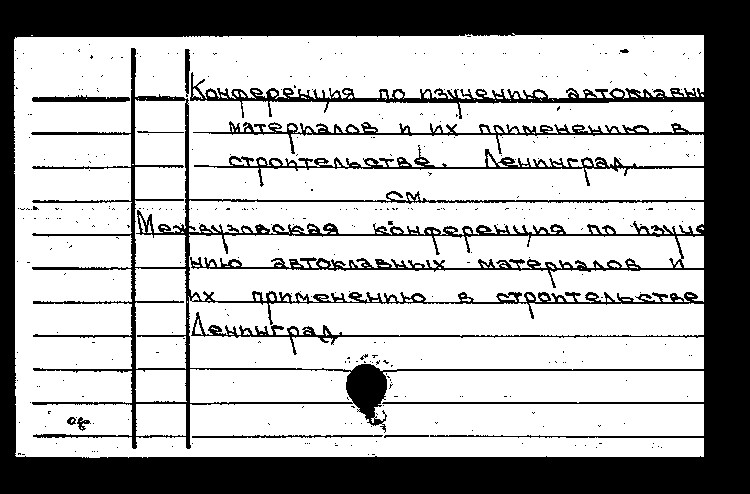 Конференция по изучению автоклавны
материалов и их применению в
строительстве. Ленинград,
см.
Межвузовская конференция по изуче
нию автоклавных материалов и
их применению в строительстве
Ленинград.